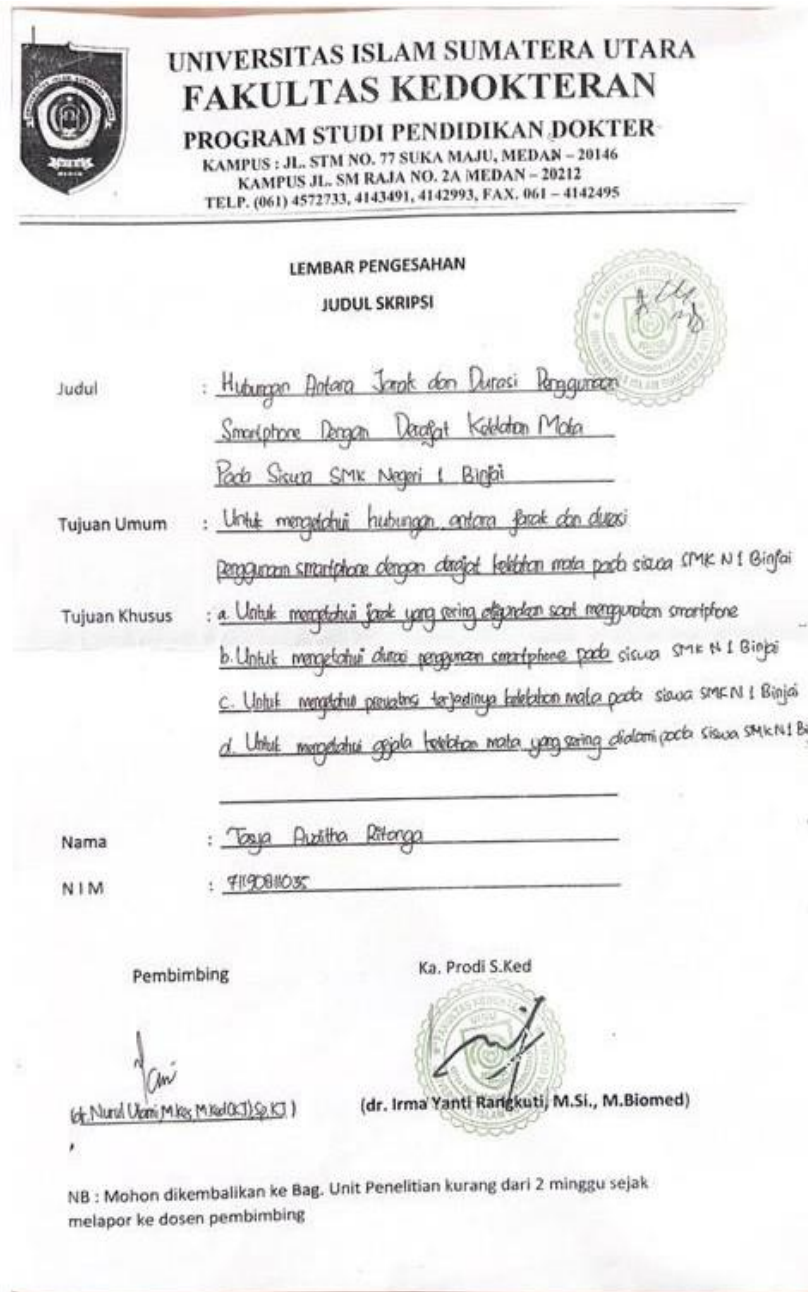 UNIVERSITAS ISLAM SUMATERA UTARA
FAKULTAS KEDOKTERAN
PROGRAM STUDI PENDIDIKAN DOKTER
KAMPUS : JL. STM NO. 77 SUKA MAJU, MEDAN – 20146
KAMPUS JL. SM RAJA NO. 2A MEDAN – 20212
TELP. (061) 4572733, 4143491, 4142993, FAX. 061 – 4142495
LEMBAR PENGESAHAN
JUDUL SKRIPSI
Judul : Hubungan Antara Jarak dan Durasi Penggunaan
Smartphone Dengan Derajat Kelelahan Mata
Pada Siswa SMK Negeri 1 Binjai
Tujuan Umum : Untuk mengetahui hubungan antara jarak dan durasi
penggunaan smartphone dengan derajat kelelahan mata pada siswa SMK N 1 Binjai
Tujuan Khusus : a. Untuk mengetahui jarak yang sering digunakan saat menggunakan smartphone
b. Untuk mengetahui durasi penggunaan smartphone pada siswa SMK N 1 Binjai
c. Untuk mengetahui prevalensi terjadinya kelelahan mata pada siswa SMK N 1 Binjai
d. Untuk mengetahui gejala kelelahan mata yang sering dialami pada siswa SMK N 1 Bi
Nama : Tasya Auditha Ritonga
NIM : 71190811035
Pembimbing
Ka. Prodi S.Ked
(dr. Nurul Utami, M.Kes, M.Ked(KJ) Sp.KJ )
(dr. Irma Yanti Rangkuti, M.Si., M.Biomed)
NB : Mohon dikembalikan ke Bag. Unit Penelitian kurang dari 2 minggu sejak
melapor ke dosen pembimbing